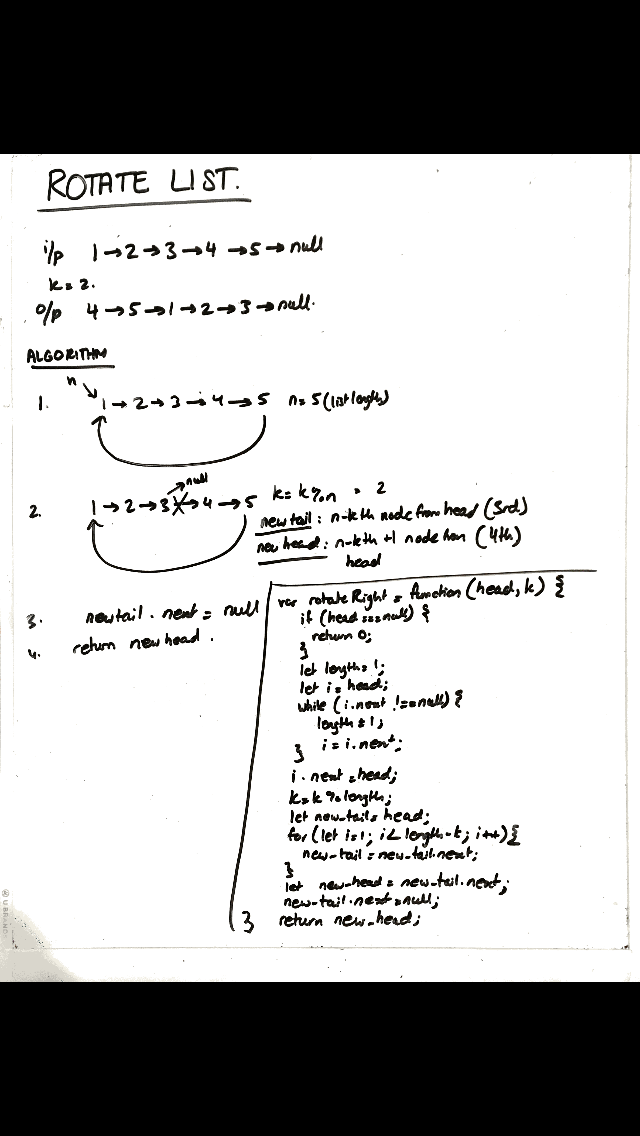 ROTATE LIST.
i/p 1→2→3→4→5→null
k=2.
o/p 4→5→1→2→3→null.
ALGORITHM
n
1. 1→2→3→4→5 n=5 (list length)
null
2. 1→2→3→4→5 k=k%n = 2
new tail: n-kth node from head (3rd)
new head: n-kth +1 node from (4th)
head
3. newtail.next = null
4. return new head.
var rotateRight = function (head, k) {
if (head === null) {
return 0;
}
let length = 1;
let i = head;
while (i.next !== null) {
length += 1;
i = i.next;
}
i.next = head;
k=k % length;
let new-tail = head;
for (let i=1; i< length-k; i++) {
new-tail = new-tail.next;
}
let new-head = new-tail.next;
new-tail.next = null;
return new-head;
}